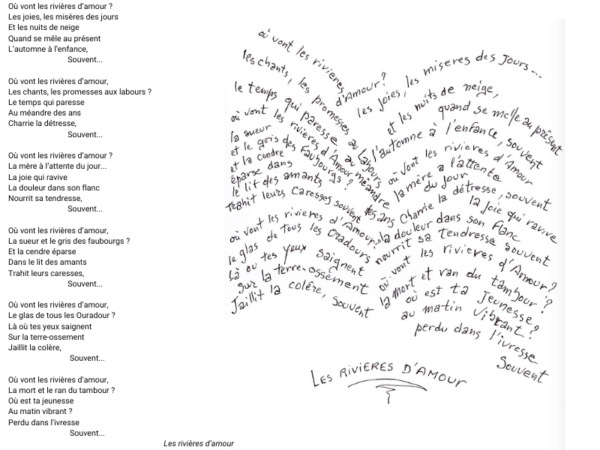 Où vont les rivières d'amour ?
Les joies, les misères des jours
Et les nuits de neige
Quand se mêle au présent
L'automne à l'enfance,
Souvent...
Où vont les rivières d'amour,
Les chants, les promesses aux labours ?
Le temps qui paresse
Au méandre des ans
Charrie la détresse,
Souvent...
Où vont les rivières d'amour ?
La mère à l'attente du jour...
La joie qui ravive
La douleur dans son flanc
Nourrit sa tendresse,
Souvent...
Où vont les rivières d'amour,
La sueur et le gris des faubourgs ?
Et la cendre éparse
Dans le lit des amants
Trahit leurs caresses,
Souvent...
Où vont les rivières d'amour,
Le glas de tous les Ouradour ?
Là où tes yeux saignent
Sur la terre-ossement
Jaillit la colère,
Souvent...
Où vont les rivières d'amour,
La mort et le ran du tambour ?
Où est ta jeunesse
Au matin vibrant ?
Perdu dans l'ivresse
Souvent...
Les rivières d'amour
où vont les rivieres d'Amour?
les joies, les miseres des Jours...
et les nuits de neige,
quand se melle au présent
l'automne à l'enfance, souvent
les chants, les promesses au labours
le temps qui paresse au meandre des ans
Charrie la détresse, souvent
où vont les rivières d'Amour
la mère a l'attente du Jour
la Joie qui ravive
la douleur dans son Flanc
nourrit sa tendresse souvent
où vont les rivières d'Amour
la sueur
et le gris des Faubourgs ?
et la cendre
éparse dans
le lit des amants
trahit leurs caresses souvent
où vont les rivieres d'Amour
le glas de tous les Oradours
Là où tes yeux saignent
sur la terre-ossement
Jaillit la colère, souvent
où vont les rivieres d'Amour?
la mort et ran du tambour ?
où est ta Jeunesse ?
au matin vibrant ?
perdu dans l'ivresse
Souvent
LES RIVIERES D'AMOUR